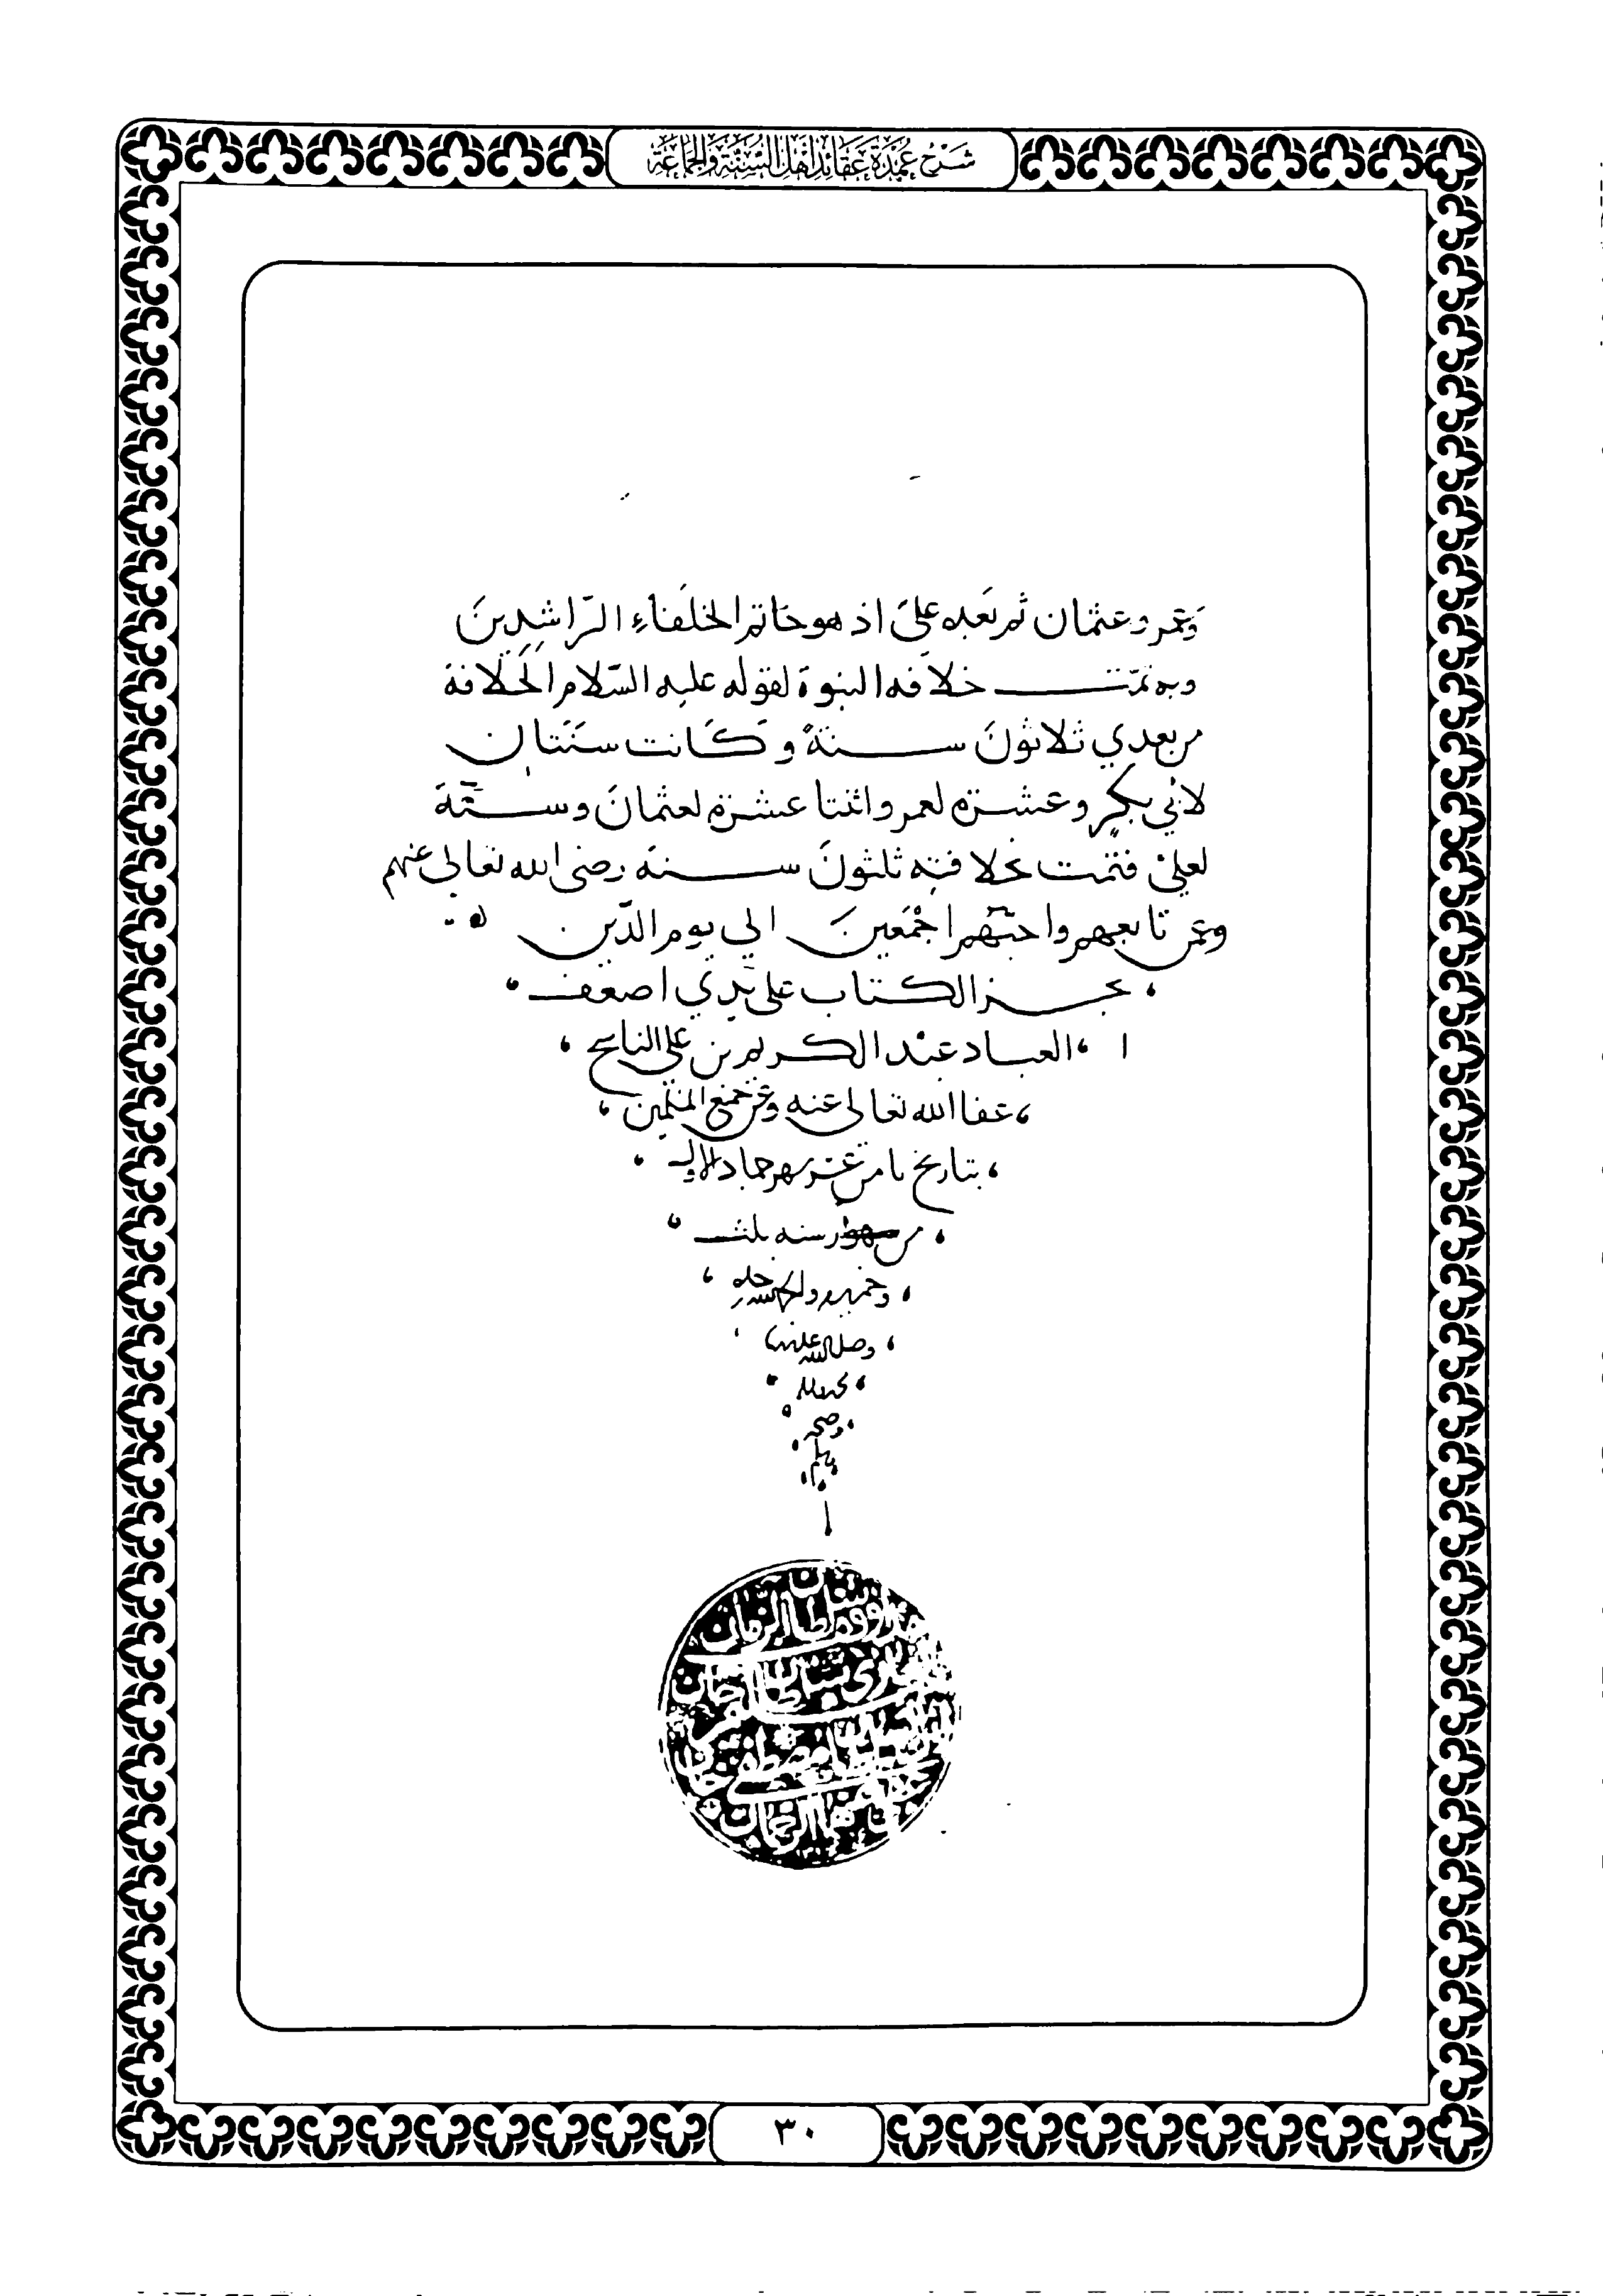 شَرْحُ عُمْدَةِ عَقَائِدِ أَهْلِ السُّنَّةِ وَالْجَمَاعَةِ
وَعمر وعثمان ثم بَعده عليَ اذ هو خاتم الخلفَاءِ الرّاشِدِينَ
وبه تمّت خلافه النبوة لقوله عليه السّلام الخَلَافة
من بعدي ثلاثونَ سنةً وكَانت سَنَتان
لابي بكرٍ وعشرة لعمر واثنتا عشرة لعثمانَ وستّةَ
لعليٍ فتمت بخلافته ثلثونَ سنة رضى الله تعالى عنهم
وعن تابعهم واحبّهم اجْمَعينَ الي يوم الدّين
نجز الكتاب على يَدَي اضعف
العباد عبْد الكريم بن على الناسخ
عفا الله تعالى عنه وعن جميع المسلمين
بتاريخ ثامن عشر شهر جماد الاول
من شهور سنه ثلث
وصلى الله على
محمد
وصحبه
وسلم
٣٠